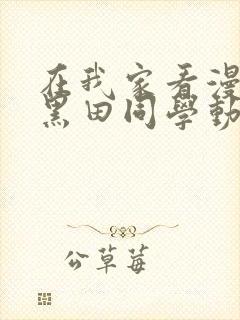 在我家看漫
黑田同學動
公草莓